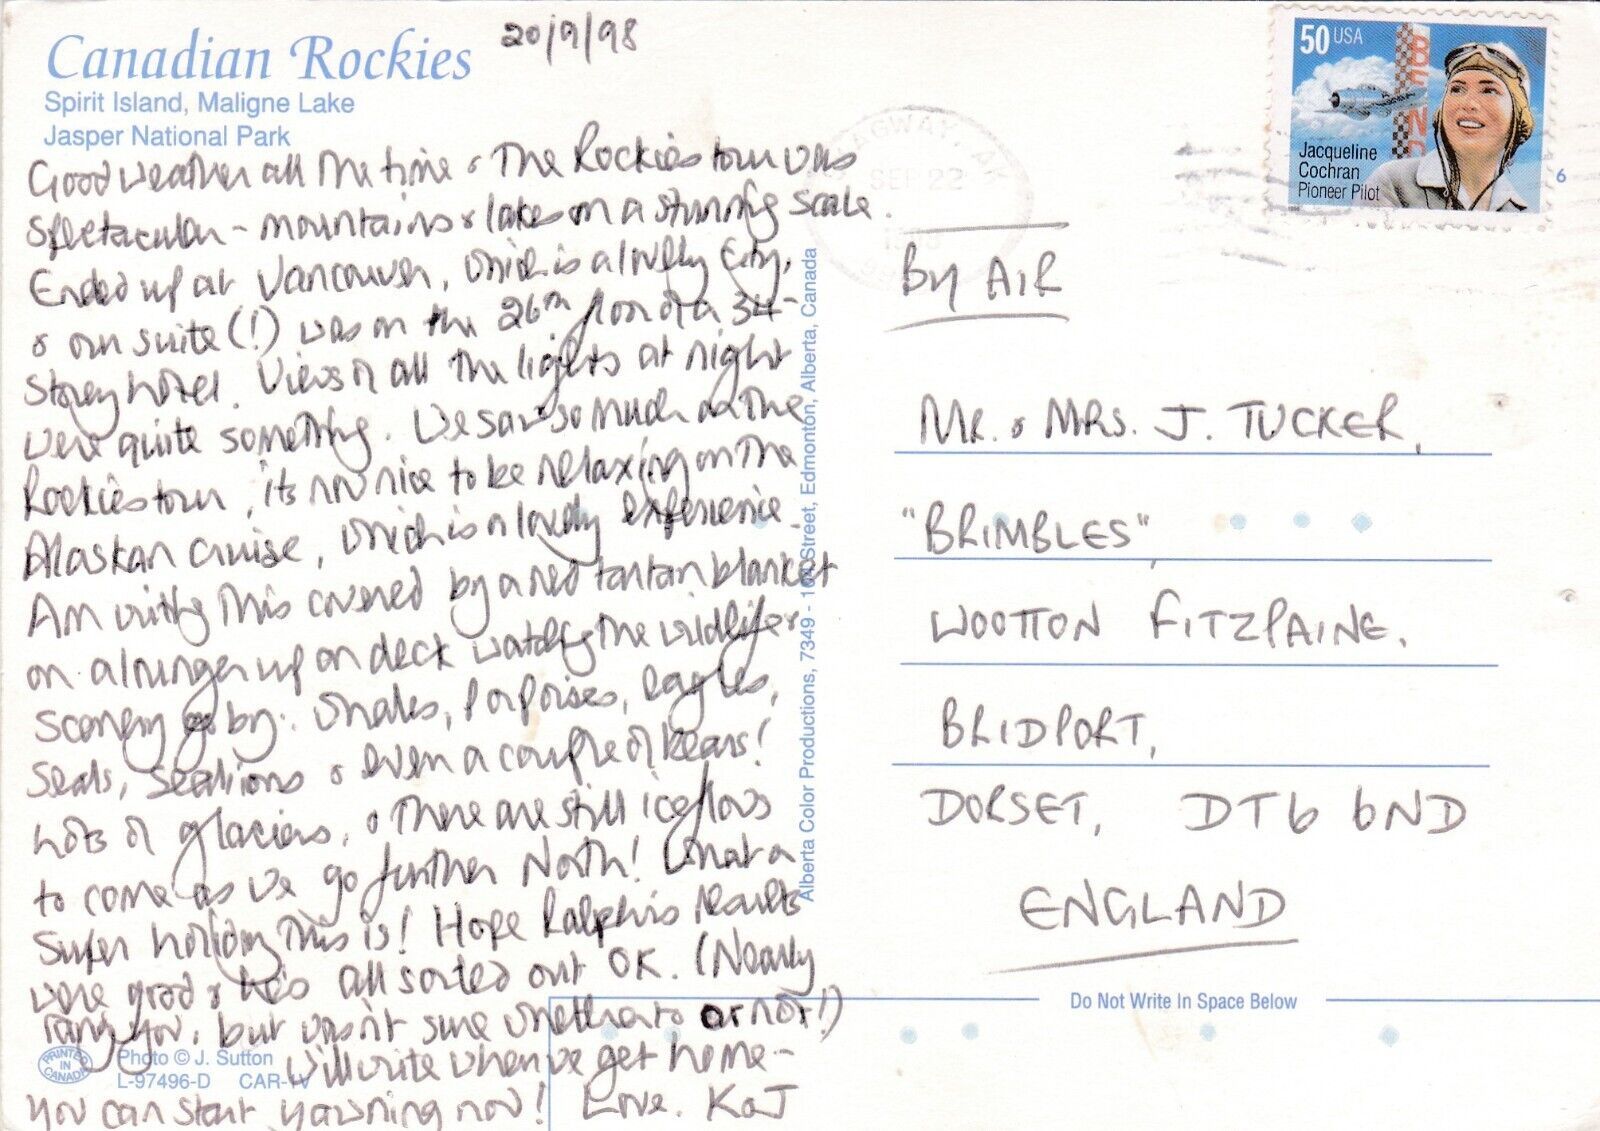 Canadian Rockies
20/9/98
Spirit Island, Maligne Lake
Jasper National Park
Good weather all the time & the Rockies tour was
spectacular - mountains & lakes on a stunning scale.
Ended up at Vancouver, which is a lovely city,
& our suite (!) was on the 26th floor of a 34-
storey hotel. Views of all the lights at night
were quite something. We saw so much on the
Rockies tour, its now nice to be relaxing on the
Alaskan cruise, which is a lovely experience.
Am writing this covered by a red tartan blanket
on a lounger up on deck watching the wildlife &
scenery go by. Whales, Porpoises, Eagles,
Seals, Sealions & even a couple of bears!
Lots of glaciers, & there are still ice flows
to come as we go further North! What a
super holiday this is! Hope Ralph's results
were good & he's all sorted out OK. (Nearly
rang you, but wasn't sure whether to or not!)
Will write when we get home -
You can start yawning now! Love. K & J
PRINTED IN CANADA
Photo © J. Sutton
L-97496-D CAR-IV
Alberta Color Productions, 7349 - 104 Street, Edmonton, Alberta, Canada
AGWAY, AK
SEP 22
50 USA
BEND
Jacqueline
Cochran
Pioneer Pilot
6
By AIR
MR. & MRS. J. TUCKER,
"BRIMBLES",
WOOTTON FITZPAINE,
BRIDPORT,
DORSET, DT6 6ND
ENGLAND
Do Not Write In Space Below